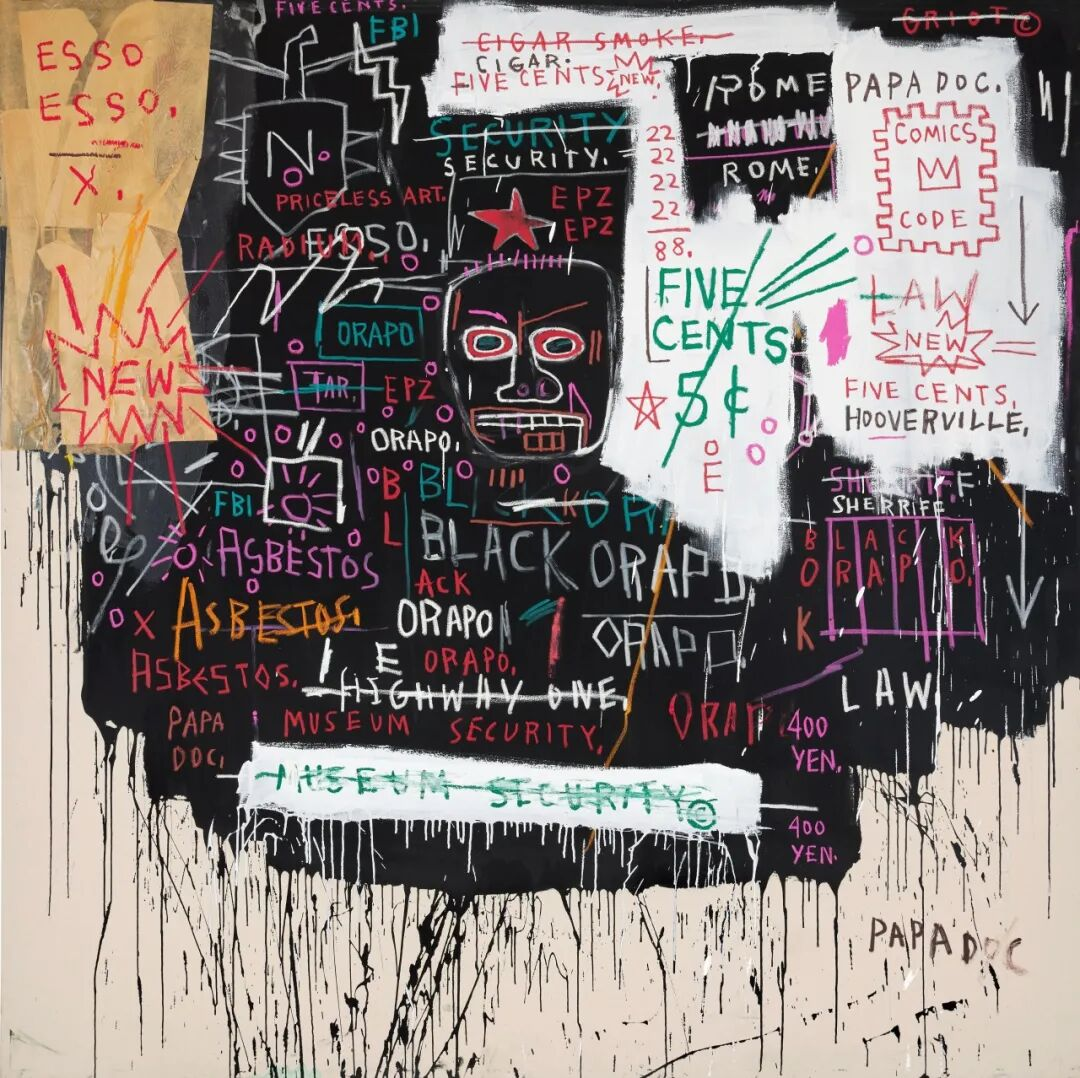 FIVE CENTS.
ESSO
ESSO.
X.
FBI
N
PRICELESS ART.
RADIUM.
ESSO.
CIGAR SMOKE.
CIGAR.
FIVE CENTS
NEW
SECURITY
SECURITY.
EPZ
EPZ
22
22
22
22
88.
ROME
ROME.
GRIOT©
PAPA DOC.
COMICS
CODE
LAW
NEW
FIVE CENTS.
HOOVERVILLE.
FIVE
CENTS
5¢
E
NEW
ORAPO
TAR.
EPZ
ORAPO.
FBI
B
L
BL
ASBESTOS
BLACK ORAPO
ACK
X ASBESTOS.
ORAPO
ORAPO
ORAPO.
ASBESTOS.
HIGHWAY ONE.
SHERRIFF
SHERRIFF
BLACK
ORAPO.
K
LAW
PAPA
DOC.
MUSEUM SECURITY.
ORAP
400
YEN.
MUSEUM SECURITY©
400
YEN.
PAPA DOC